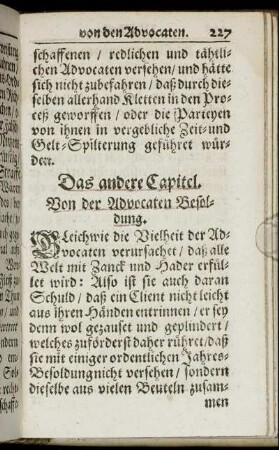 von den Advocaten. 227
schaffenen / redlichen und tähtli-
chen Advocaten versehen / und hätte
sich nicht zubefahren / daß durch die-
selben allerhand Kletten in den Pro-
ceß geworffen / oder die Partheyen
von ihnen in vergebliche Zeit- und
Gelt-Spilterung geführet wür-
den.
Das andere Capitel.
Von der Advocaten Besol-
dung.
GLeichwie die Vielheit der Ad-
vocaten verursachet / daß alle
Welt mit Zanck und Hader erfül-
let wird: Also ist sie auch daran
Schuld / daß ein Client nicht leicht
aus ihren Händen entrinnen / er sey
denn wol gezauset und geplündert /
welches zuförderst daher rühret / daß
sie mit einiger ordentlichen Jahres-
Besoldung nicht versehen / sondern
dieselbe aus vielen Beuteln zusam-
men